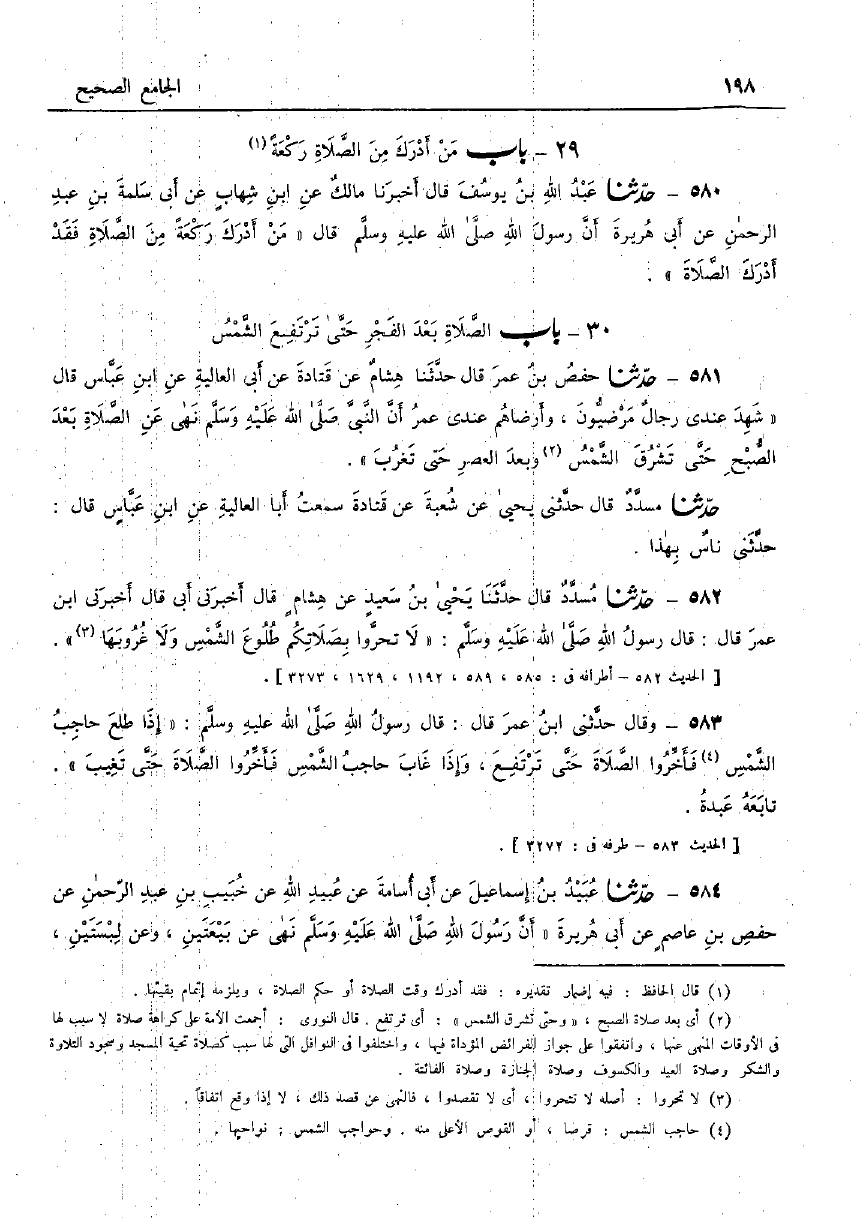 ١٩٨ الجامع الصحيح
٢٩ – باب مَنْ أَدْرَكَ مِنَ الصَّلَاةِ رَكْعَةً (١)
٥٨٠ – حدّثنا عَبْدُ اللهِ بنُ يوسُفَ قال أخبرَنا مالكٌ عنِ ابنِ شِهابٍ عن أبى سَلمةَ بنِ عبدِ
الرحمٰنِ عن أبى هُريرةَ أنَّ رسولَ اللهِ صلَّىٰ الله عليهِ وسلَّم قال « مَنْ أدْرَكَ رَكْعَةً مِنَ الصَّلَاةِ فَقَدْ
أَدْرَكَ الصَّلَاةَ » .
٣٠ – باب الصَّلَاةِ بَعْدَ الفَجْرِ حَتَّىٰ تَرْتَفِعَ الشَّمْسُ
٥٨١ – حدّثنا حفصُ بنُ عمرَ قال حدَّثَنا هِشامٌ عن قَتادةَ عن أبى العاليةِ عنِ ابنِ عَبَّاس قال
« شَهِدَ عندى رجالٌ مَرْضيُّونَ ، وأرضاهُم عندى عمرُ أنَّ النَّبىَّ صَلَّىٰ الله عَلَيْهِ وَسَلَّم نَهَى عَنِ الصَّلَاةِ بَعْدَ
الصُّبْحِ حَتَّى تَشْرُقَ الشَّمْسُ (٢) وبعدَ العصرِ حَتى تَغرُبَ » .
حدّثنا مسدَّدٌ قال حدَّثنى يحيىٰ عن شُعبةَ عن قَتادةَ سمعتُ أبا العاليةِ عنِ ابنِ عَبَّاسٍ قال :
حدَّثَنى ناسٌ بِهٰذا .
٥٨٢ – حدّثنا مُسدَّدٌ قال حدَّثَنَا يَحْيىٰ بنُ سَعيدٍ عن هِشامٍ قال أخبرَنى أبى قال أخبرَنى ابن
عمرَ قال : قال رسولُ اللهِ صَلَّىٰ الله عَلَيْهِ وَسَلَّم : « لَا تَحرَّوا بِصَلَاتِكُم طُلُوعَ الشَّمْسِ وَلَا غُرُوبَهَا (٣) » .
[ الحديث ٥٨٢ – أطرافه فى : ٥٨٥ ، ٥٨٩ ، ١١٩٢ ، ١٦٢٩ ، ٣٢٧٣ ] .
٥٨٣ – وقال حدَّثنى ابنُ عمرَ قال : قال رسولُ اللهِ صَلَّىٰ الله عليهِ وسلَّم : « إذَا طلعَ حاجِبُ
الشَّمْسِ (٤) فَأَخِّرُوا الصَّلَاةَ حَتَّى تَرْتَفِعَ ، وَإِذَا غَابَ حاجبُ الشَّمْسِ فَأَخِّرُوا الصَّلَاةَ حَتَّى تَغِيبَ » .
تابَعَهُ عبدةُ .
[ الحديث ٥٨٣ – طرفه فى : ٣٢٧٢ ] .
٥٨٤ – حدّثنا عُبَيْدُ بنُ إسماعيلَ عن أبى أُسامةَ عن عُبيدِ اللهِ عن خُبَيبِ بنِ عبدِ الرّحمٰنِ عن
حفصِ بنِ عاصمٍ عن أبى هُريرةَ « أنَّ رَسُولَ اللهِ صَلَّىٰ الله عَلَيْهِ وَسَلَّم نَهَىٰ عن بَيْعَتَينِ ، وعن لِبْسَتَيْنِ ،
(١) قال الحافظ : فيه إضمار تقديره : فقد أدرك وقت الصلاة أو حكم الصلاة ، ويلزمه إتمام بقيتها .
(٢) أى بعد صلاة الصبح ، « وحتى تشرق الشمس » : أى ترتفع . قال النووى : أجمعت الأمة على كراهة صلاة لا سبب لها
فى الأوقات المنهى عنها ، واتفقوا على جواز الفرائض المؤداة فيها ، واختلفوا فى النوافل التى لها سبب كصلاة تحية المسجد وسجود التلاوة
والشكر وصلاة العيد والكسوف وصلاة الجنازة وصلاة الفائتة .
(٣) لا تحروا : أصله لا تتحروا ، أى لا تقصدوا ، فالنهى عن قصد ذلك ، لا إذا وقع اتفاقاً .
(٤) حاجب الشمس : قرصا ، أو القوس الأعلى منه . وحواجب الشمس : نواحيها .